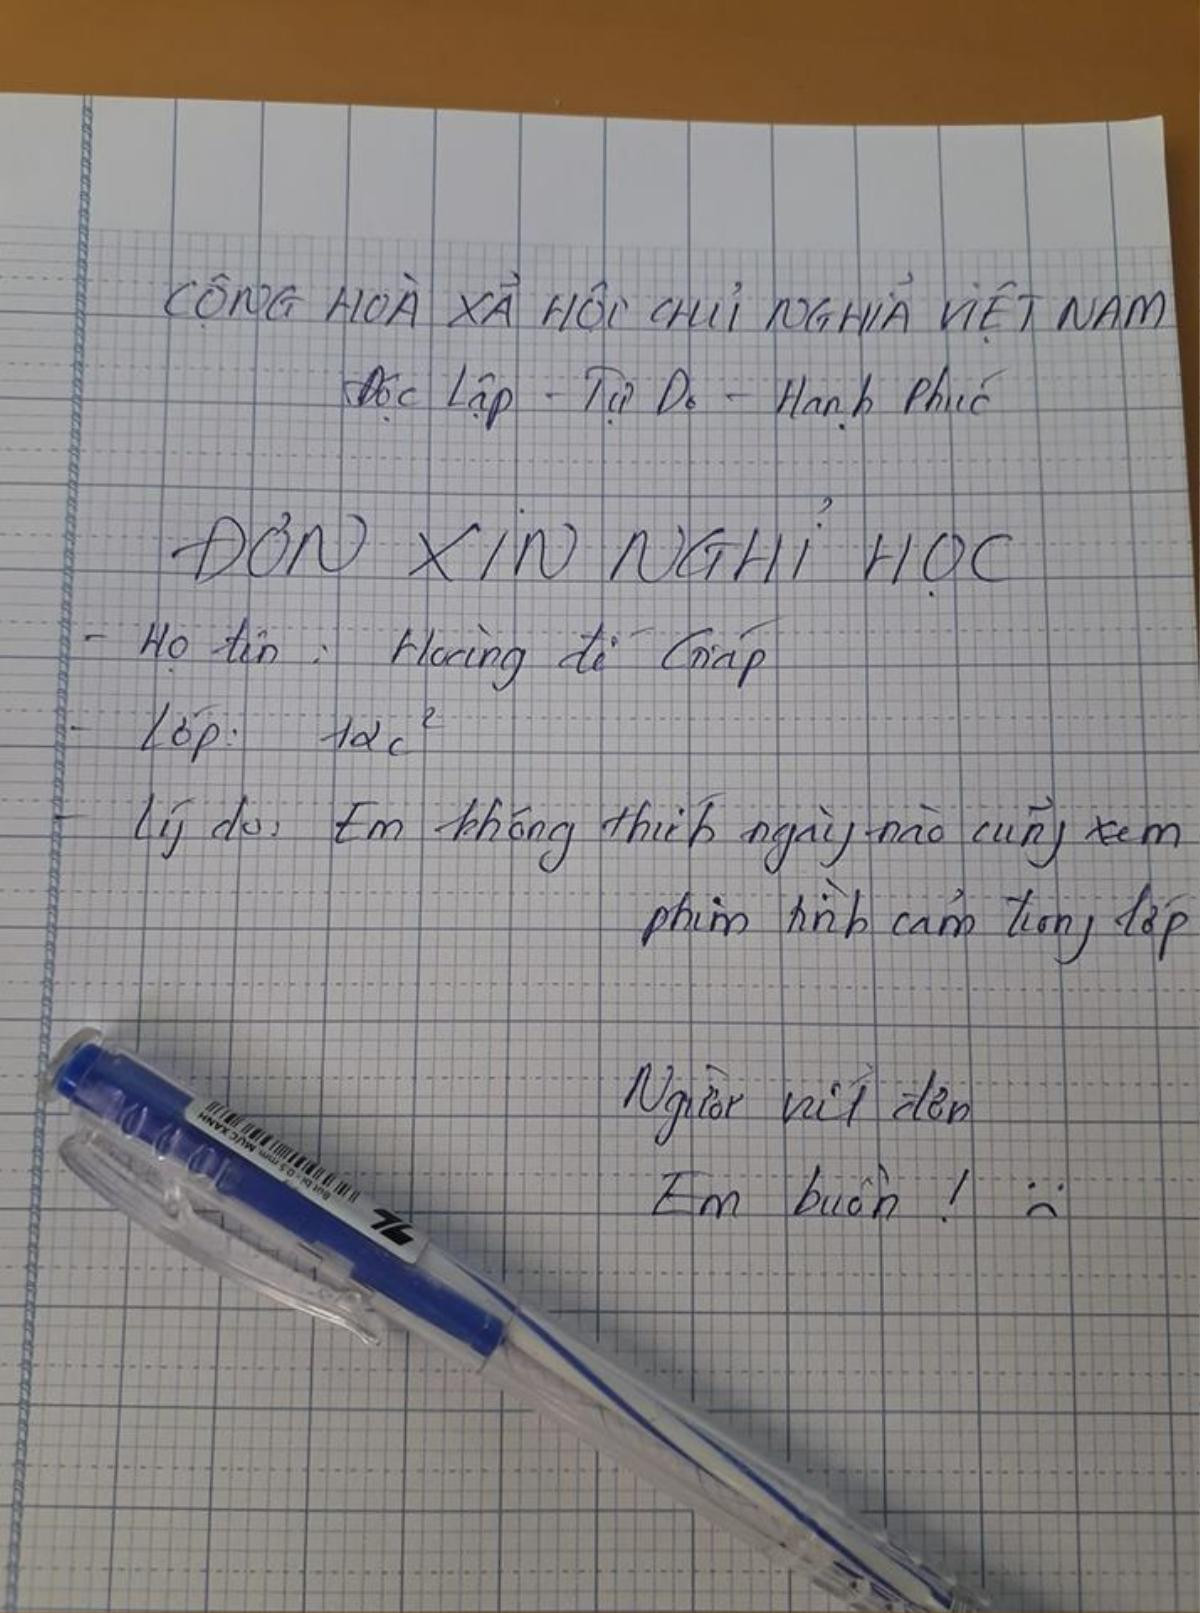 CỘNG HOÀ XẢ HỘI CHỦ NGHIẢ VIỆT NAM
Độc Lập - Tự Do - Hạnh Phúc
ĐƠN XIN NGHỈ HỌC
- Họ tên : Hoàng tế Giáp
- Lớp: 12c²
- Lý do: Em không thích ngày nào cũng xem
phim tình cảm trong lớp
Người viết đơn
Em buồn ! :(
TL
Bút bi - 0.5 mm MỰC XANH